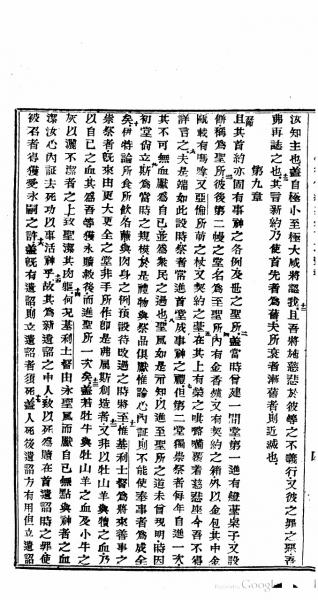 汝知主也蓋自極小至極大咸將認我且吾將施慈悲於彼等之不義行又彼之罪之無吾
弗再誌之也其言新約乃使首先者為舊夫所衰者漸舊者則近滅也
第九章
且其首約亦固有事神之各例及世之聖所蓋當時曾建一間堂第一進有燈臺桌子又設
餅稱為聖所彼後第二幔之堂名為至聖所內有金香爐又有契約之箱外以金包其中金
瓶載有嗎又亞倫所萌之杖又契約之在其上有榮之覆着慈悲座今吾不得
詳言之夫是端如此設時祭者常進首堂成事神之禮但第二堂獨崇祭者每年自進一次
其不可無血獻為自己並為衆民之過也聖風如是示知以進至聖所之道未曾現明時因
初堂尚立斯為當時之規模於是禮物與祭品俱獻惟論心內証則不能使奉事者為成全
矣伊特論所食所飲各蘸與肉身之例預設待改過之時將至惟基利士督為將來善事之
崇祭者既來由更大更全之堂非手所作即是弗屬斯創造者又非以牡山羊與犢之血乃
以自己之血其為吾等獲永贖救後而進聖所一次矣蓋若牡牛與牡山羊之血及小牛之
灰以灑不潔者之上致聖潔其肉軀何況基利士督由永聖風而獻自己無點與神者之血
潔汝心內証去死功以事活神乎故其為新遺詔之中人致以死為贖在首遺詔時之罪使
被召者得獲受永嗣之許蓋既有遺詔則立遺詔者須死蓋人死後遺詔方有用但立遺詔
Google